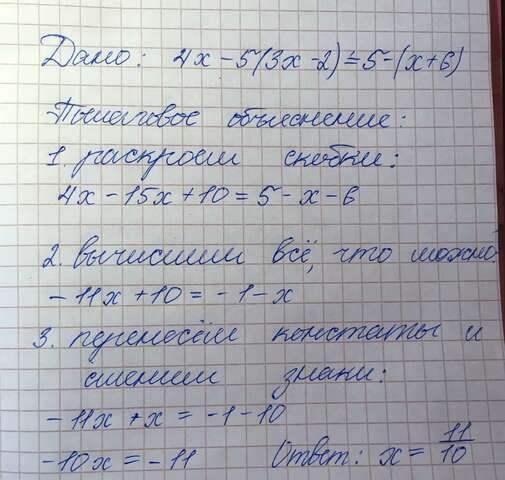 Дано: 4x - 5(3x - 2) = 5 - (x + 6)
Пошаговое объяснение:
1. раскроем скобки:
4x - 15x + 10 = 5 - x - 6
2. вычислим всё, что можно:
-11x + 10 = -1 - x
3. перенесём констаты и
сменим знаки:
-11x + x = -1 - 10
-10x = -11 Ответ: x = 11/10